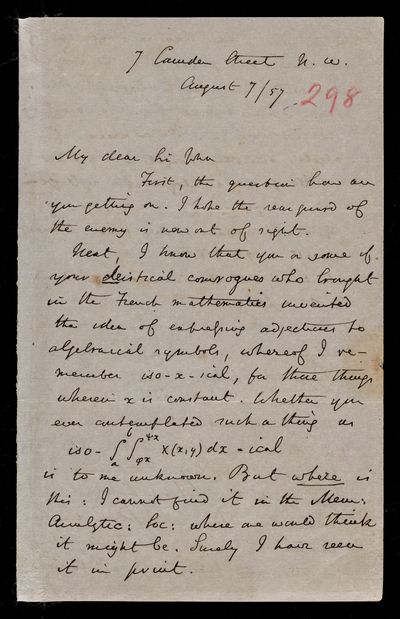 7 Camden Street N. W.
August 7/57
298
My dear Sir John
First, the question how are
you getting on. I hope the rear guard of
the enemy is now out of sight.
Next, I know that you or some of
your deistical comrogues who brought
in the French mathematics invented
the idea of adjectives to
algebraical symbols, whereof I re-
member iso-x-ical, for those things
wherein x is constant. Whether you
ever contemplated such a thing as
iso- ∫ₐᵇ ∫_φx^ψx X(x,y) dx - ical
is to me unknown. But where is
this: I cannot find it in the Mem:
Analytic: Soc: where one would think
it might be. Surely I have seen
it in print.